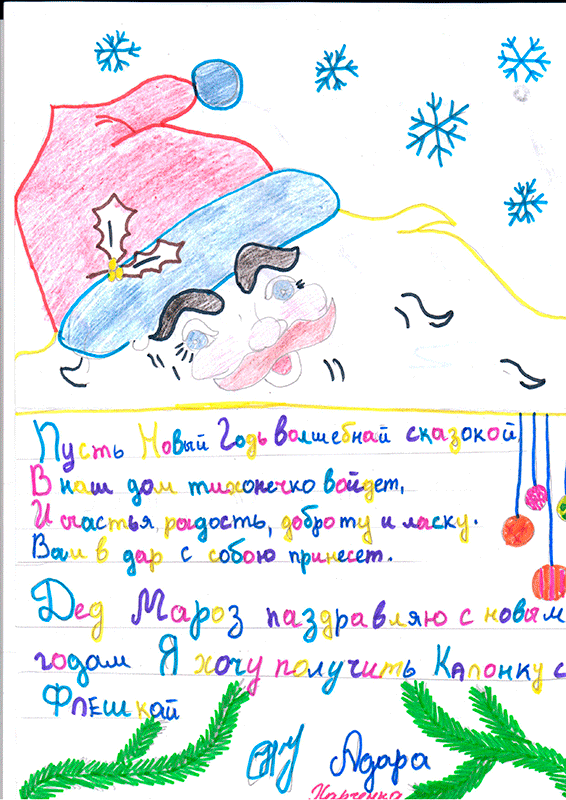 Пусть Новый Годь волшебнай сказокой
В наш дом тихонечко войдет,
И счастья, рыдость, доброту и ласку.
Вам в дар с собою принесет.
Дед Мароз паздравляю с новым
годам Я хочу получить Калонку с
Флешкай
Адара
Харченка